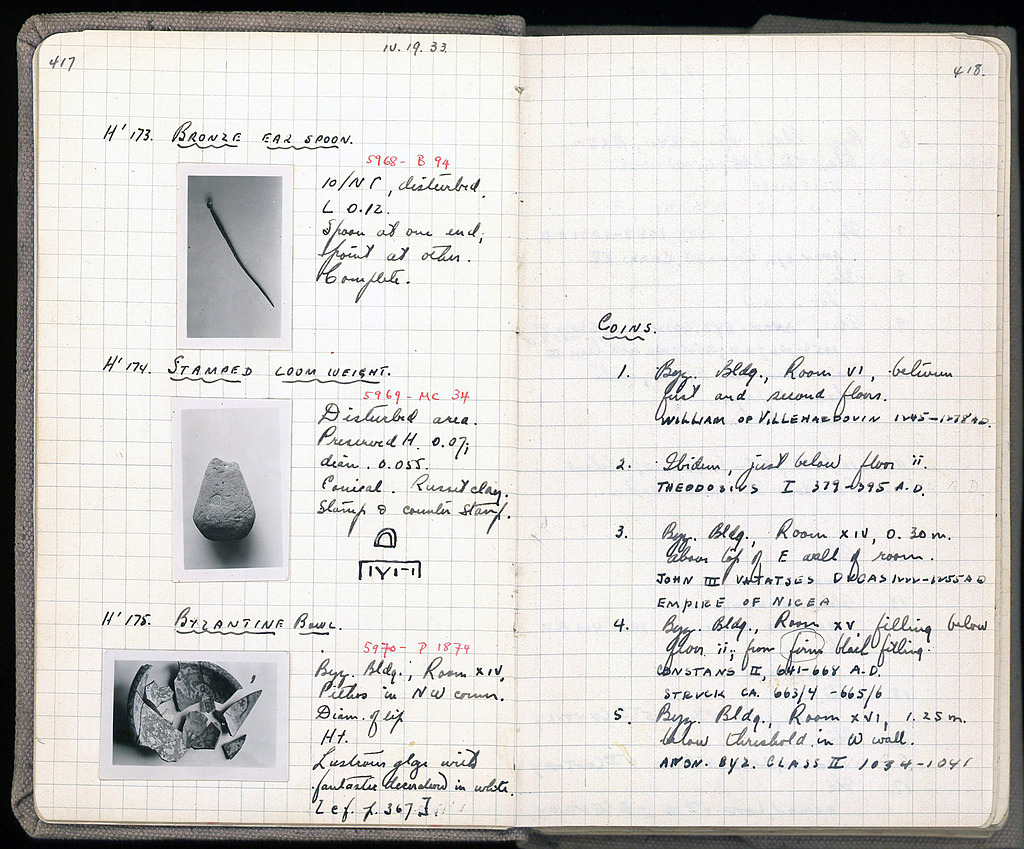 417
IV. 19. 33.
H' 173. BRONZE EAR SPOON.
5968 - B 94
10/ΝΓ, disturbed.
L 0.12.
Spoon at one end;
point at other.
Complete.
H' 174. STAMPED LOOM WEIGHT.
5969 - MC 34
Disturbed area.
Preserved H. 0.07;
diam. 0.055.
Conical. Russet clay.
Stamp & counter stamp.
H' 175. BYZANTINE BOWL.
5970 - P 1874
Byz. Bldg; Room XIV,
Pithos in NW corner.
Diam. of lip
Ht.
Lustrous glaze with
fantastic decoration in white.
[cf. p. 367.]
418.
COINS.
1. Byz. Bldg., Room VI, between
first and second floors.
WILLIAM OF VILLEHARDOUIN 1245-1278 AD.
2. Ibidem, just below floor ii.
THEODOSIUS I 379-395 A.D.
3. Byz. Bldg., Room XIV, 0.30 m.
above top of E wall of room.
JOHN III VATATSES DUCAS 1222-1255 AD
EMPIRE OF NICEA
4. Byz. Bldg., Room XV filling below
floor ii; from firm black filling.
CONSTANS II, 641-668 A.D.
STRUCK CA. 663/4 - 665/6
5. Byz. Bldg., Room XVI, 1.25 m.
below threshold in W wall.
ANON. BYZ. CLASS II 1034-1041